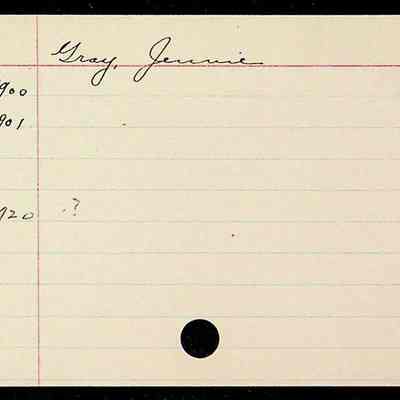 Gray, Jennie
900
901
920 .?